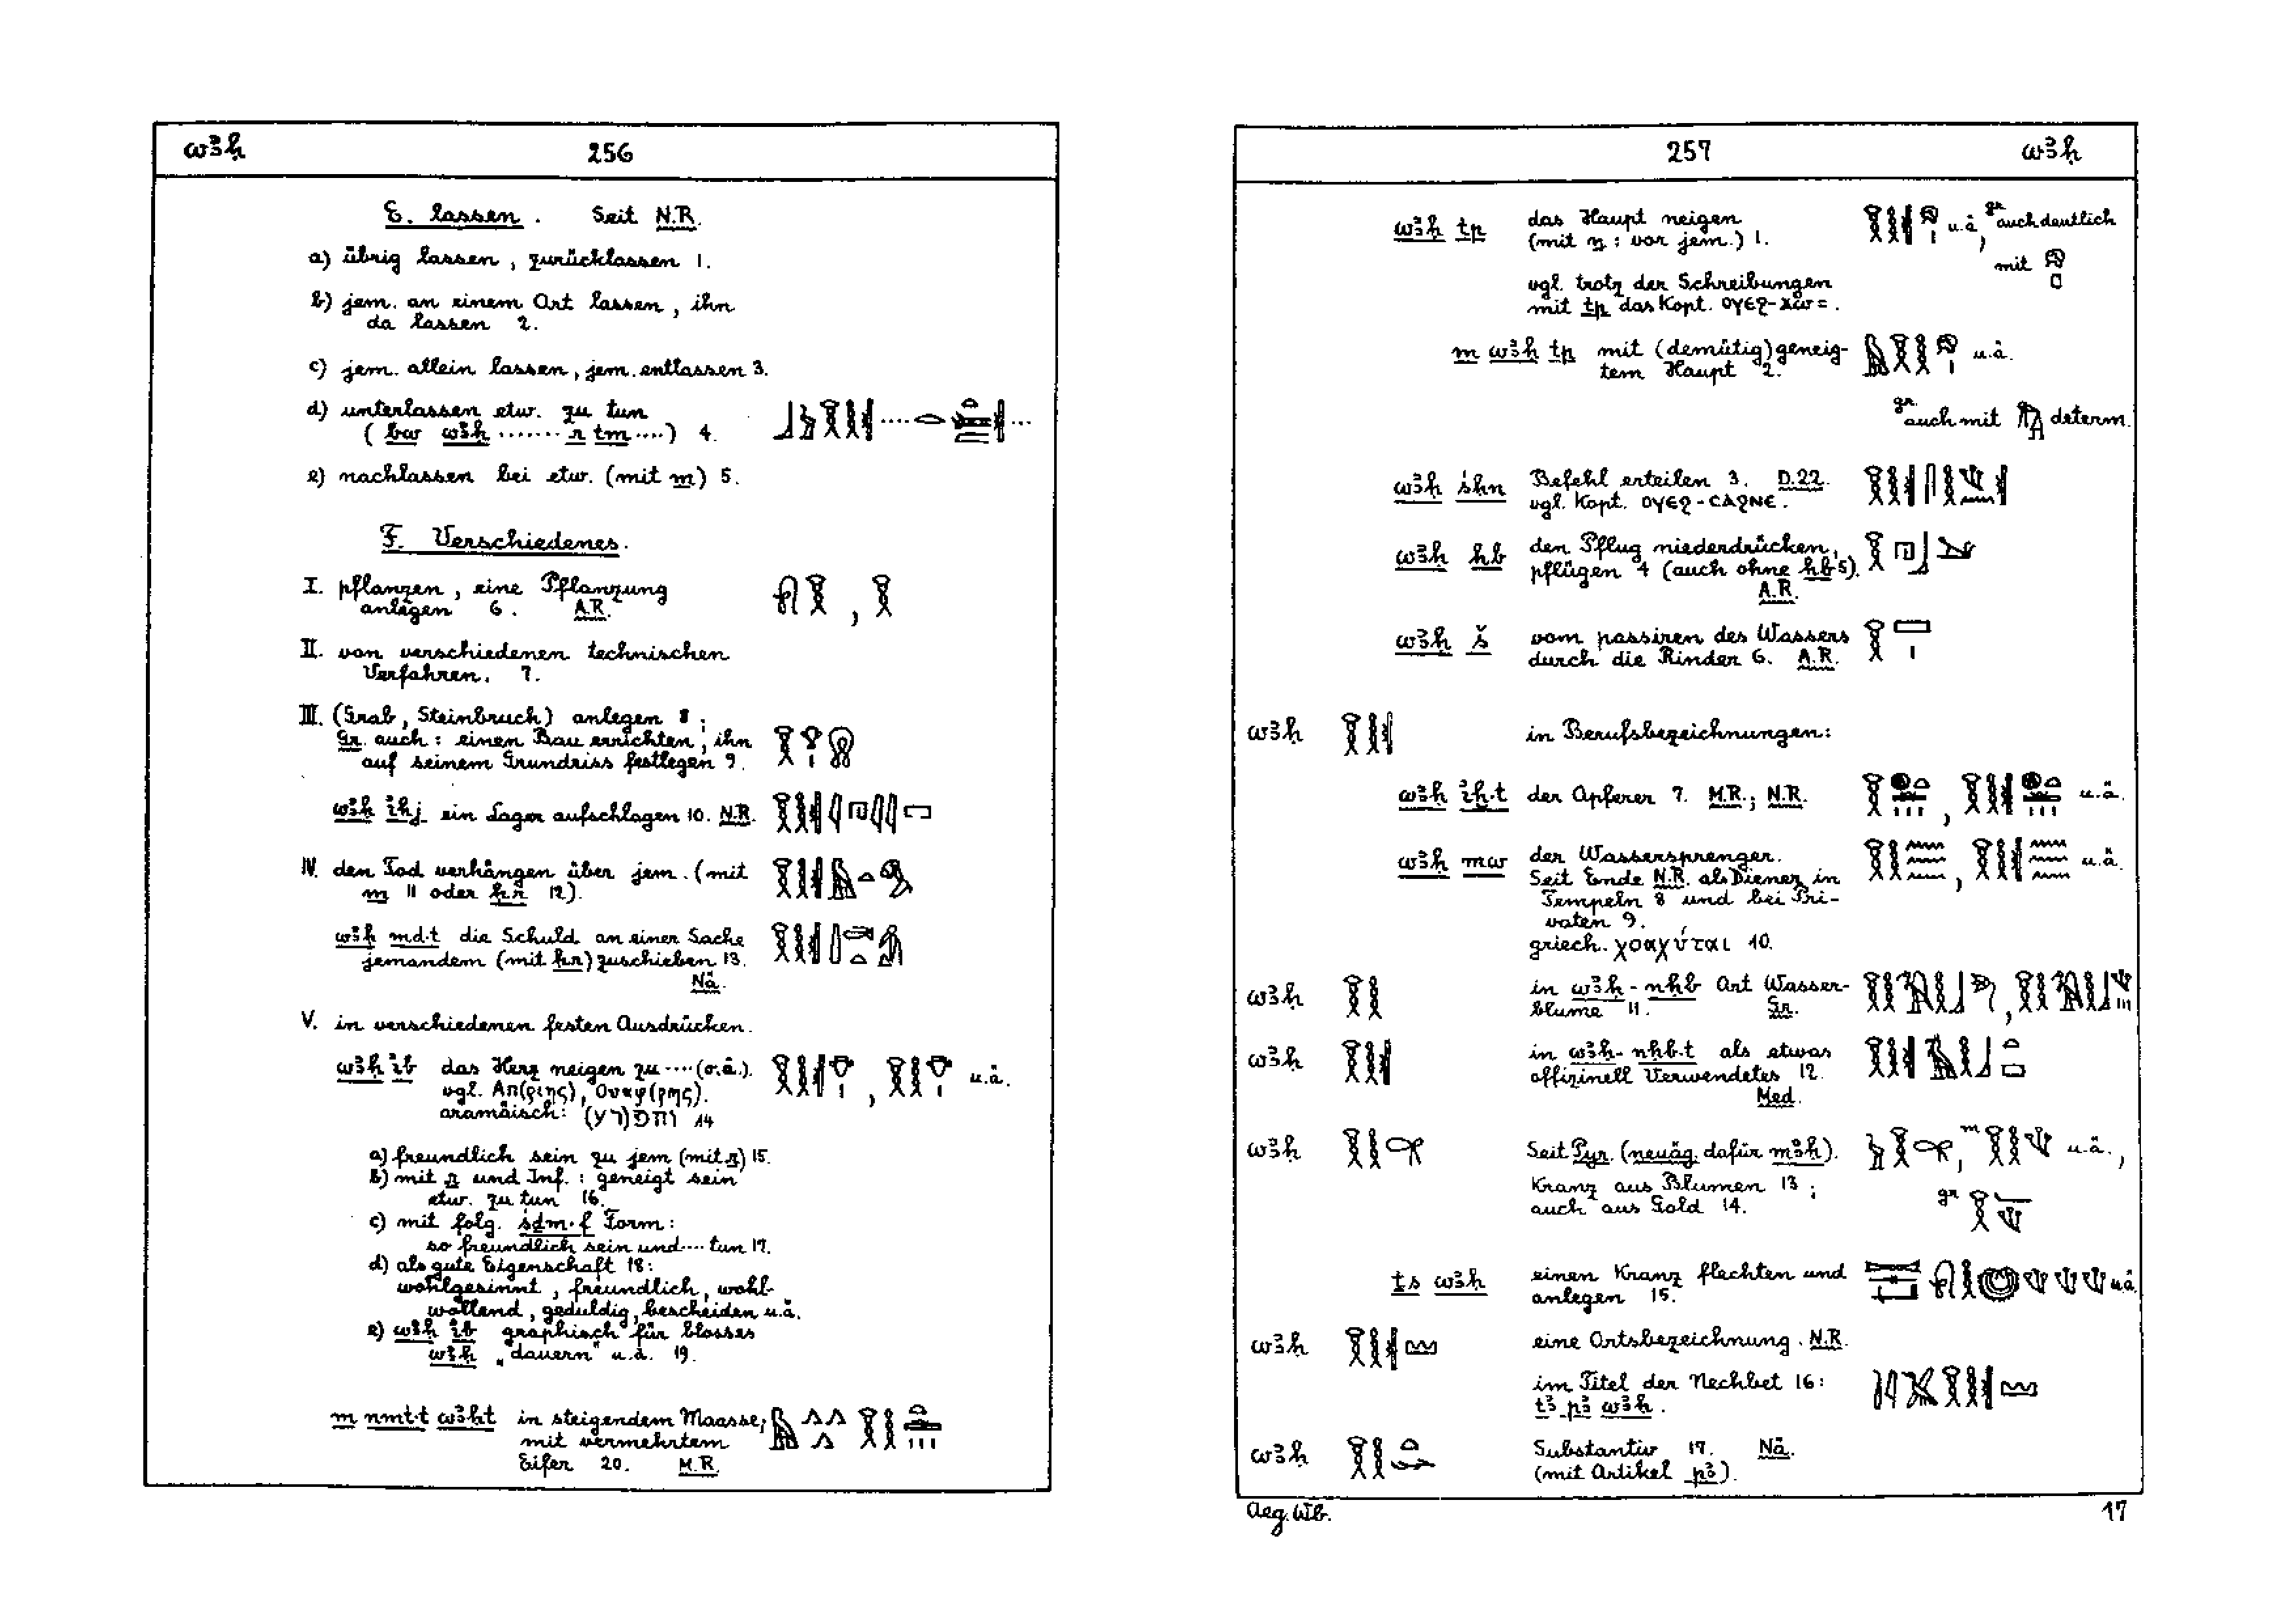 wꜣḥ 256
E. lassen. Seit N.R.
a) übrig lassen, zurücklassen 1.
b) jem. an einem Ort lassen, ihn
da lassen 2.
c) jem. allein lassen, jem. entlassen 3.
d) unterlassen etw. zu tun
(bw wꜣḥ ....... r tm ....) 4.
e) nachlassen bei etw. (mit m) 5.
F. Verschiedenes.
I. pflanzen, eine Pflanzung
anlegen 6. A.R.
II. von verschiedenen technischen
Verfahren. 7.
III. (Grab, Steinbruch) anlegen 8;
Gr. auch: einen Bau errichten, ihn
auf seinem Grundriss festlegen 9.
wꜣḥ ꞽhj ein Lager aufschlagen 10. N.R.
IV. den Tod verhängen über jem. (mit
m 11 oder ḥr 12).
wꜣḥ md.t die Schuld an einer Sache
jemandem (mit ḥr) zuschieben 13.
Nä.
V. in verschiedenen festen Ausdrücken.
wꜣḥ ꞽb das Herz neigen zu .... (o.ä.). u.ä.
vgl. Απ(ριης), Ουαφ(ρης).
aramäisch: וחפ(רע) 14
a) freundlich sein zu jem (mit n) 15.
b) mit n und Inf.: geneigt sein
etw. zu tun 16.
c) mit folg. śḏm.f Form:
so freundlich sein und .... tun 17.
d) als gute Eigenschaft 18:
wohlgesinnt, freundlich, wohl-
wollend, geduldig, bescheiden u.ä.
e) wꜣḥ ꞽb graphisch für blosses
wꜣḥ „dauern" u.ä. 19.
m nmt.t wꜣḥ.t in steigendem Maasse;
mit vermehrtem
Eifer 20. M.R.
257 wꜣḥ
wꜣḥ tp das Haupt neigen u.ä., gr. auch deutlich
(mit n: vor jem.) 1.
mit
vgl. trotz der Schreibungen
mit tp das Kopt. ⲟⲩⲉϩ-ϫⲱ=.
m wꜣḥ tp mit (demütig) geneig- u.ä.
tem Haupt 2.
gr. auch mit determ.
wꜣḥ śḥn Befehl erteilen 3. D.22.
vgl. Kopt. ⲟⲩⲉϩ-ⲥⲁϩⲛⲉ.
wꜣḥ hb den Pflug niederdrücken,
pflügen 4 (auch ohne hb 5).
A.R.
wꜣḥ š vom passiren des Wassers
durch die Rinder 6. A.R.
wꜣḥ in Berufsbezeichnungen:
wꜣḥ ꞽḫ.t der Opferer 7. M.R.; N.R. u.ä.
wꜣḥ mw der Wassersprenger. u.ä.
Seit Ende N.R. als Diener in
Tempeln 8 und bei Pri-
vaten 9.
griech. χοαχύται 10.
wꜣḥ in wꜣḥ-nḥb Art Wasser-
blume 11. Gr.
wꜣḥ in wꜣḥ-nḥb.t als etwas
offizinell Verwendetes 12.
Med.
wꜣḥ Seit Pyr. (neuäg. dafür mꜣḥ). u.ä.,
Kranz aus Blumen 13;
auch aus Gold 14. gr
ṯs wꜣḥ einen Kranz flechten und u.ä.
anlegen 15.
wꜣḥ eine Ortsbezeichnung. N.R.
im Titel der Nechbet 16:
tꜣ pꜣ wꜣḥ.
wꜣḥ Substantiv 17. Nä.
(mit Artikel pꜣ).
Aeg. Wb. 17